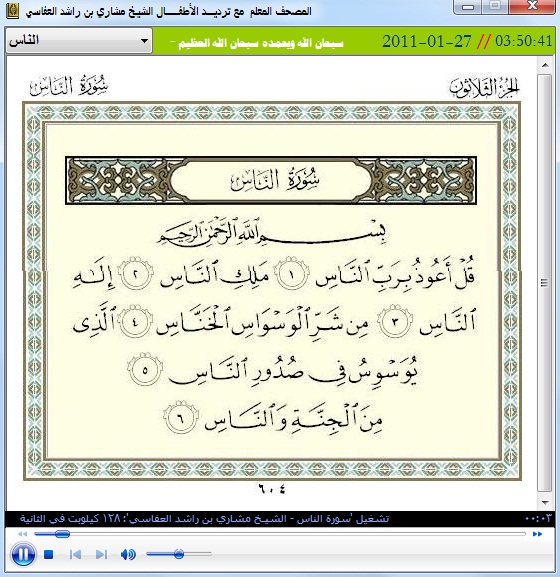 المصحف المعلم مع ترديـد الأطفـــال الشيخ مشاري بن راشد العفاسي
الناس
سبحان الله وبحمده سبحان الله العظيم -
2011-01-27 // 03:50:41
الجزء الثلاثون
سورة الناس
سُورَةُ النَّاسِ
بِسْمِ ٱللَّهِ ٱلرَّحْمَٰنِ ٱلرَّحِيمِ
قُلْ أَعُوذُ بِرَبِّ ٱلنَّاسِ ١ مَلِكِ ٱلنَّاسِ ٢ إِلَٰهِ
ٱلنَّاسِ ٣ مِن شَرِّ ٱلْوَسْوَاسِ ٱلْخَنَّاسِ ٤ ٱلَّذِى
يُوَسْوِسُ فِى صُدُورِ ٱلنَّاسِ ٥
مِنَ ٱلْجِنَّةِ وَٱلنَّاسِ ٦
٦٠٤
تشغيل 'سورة الناس - الشيخ مشاري بن راشد العفاسي': ١٢٨ كيلوبت في الثانية
٠٠:٠٣